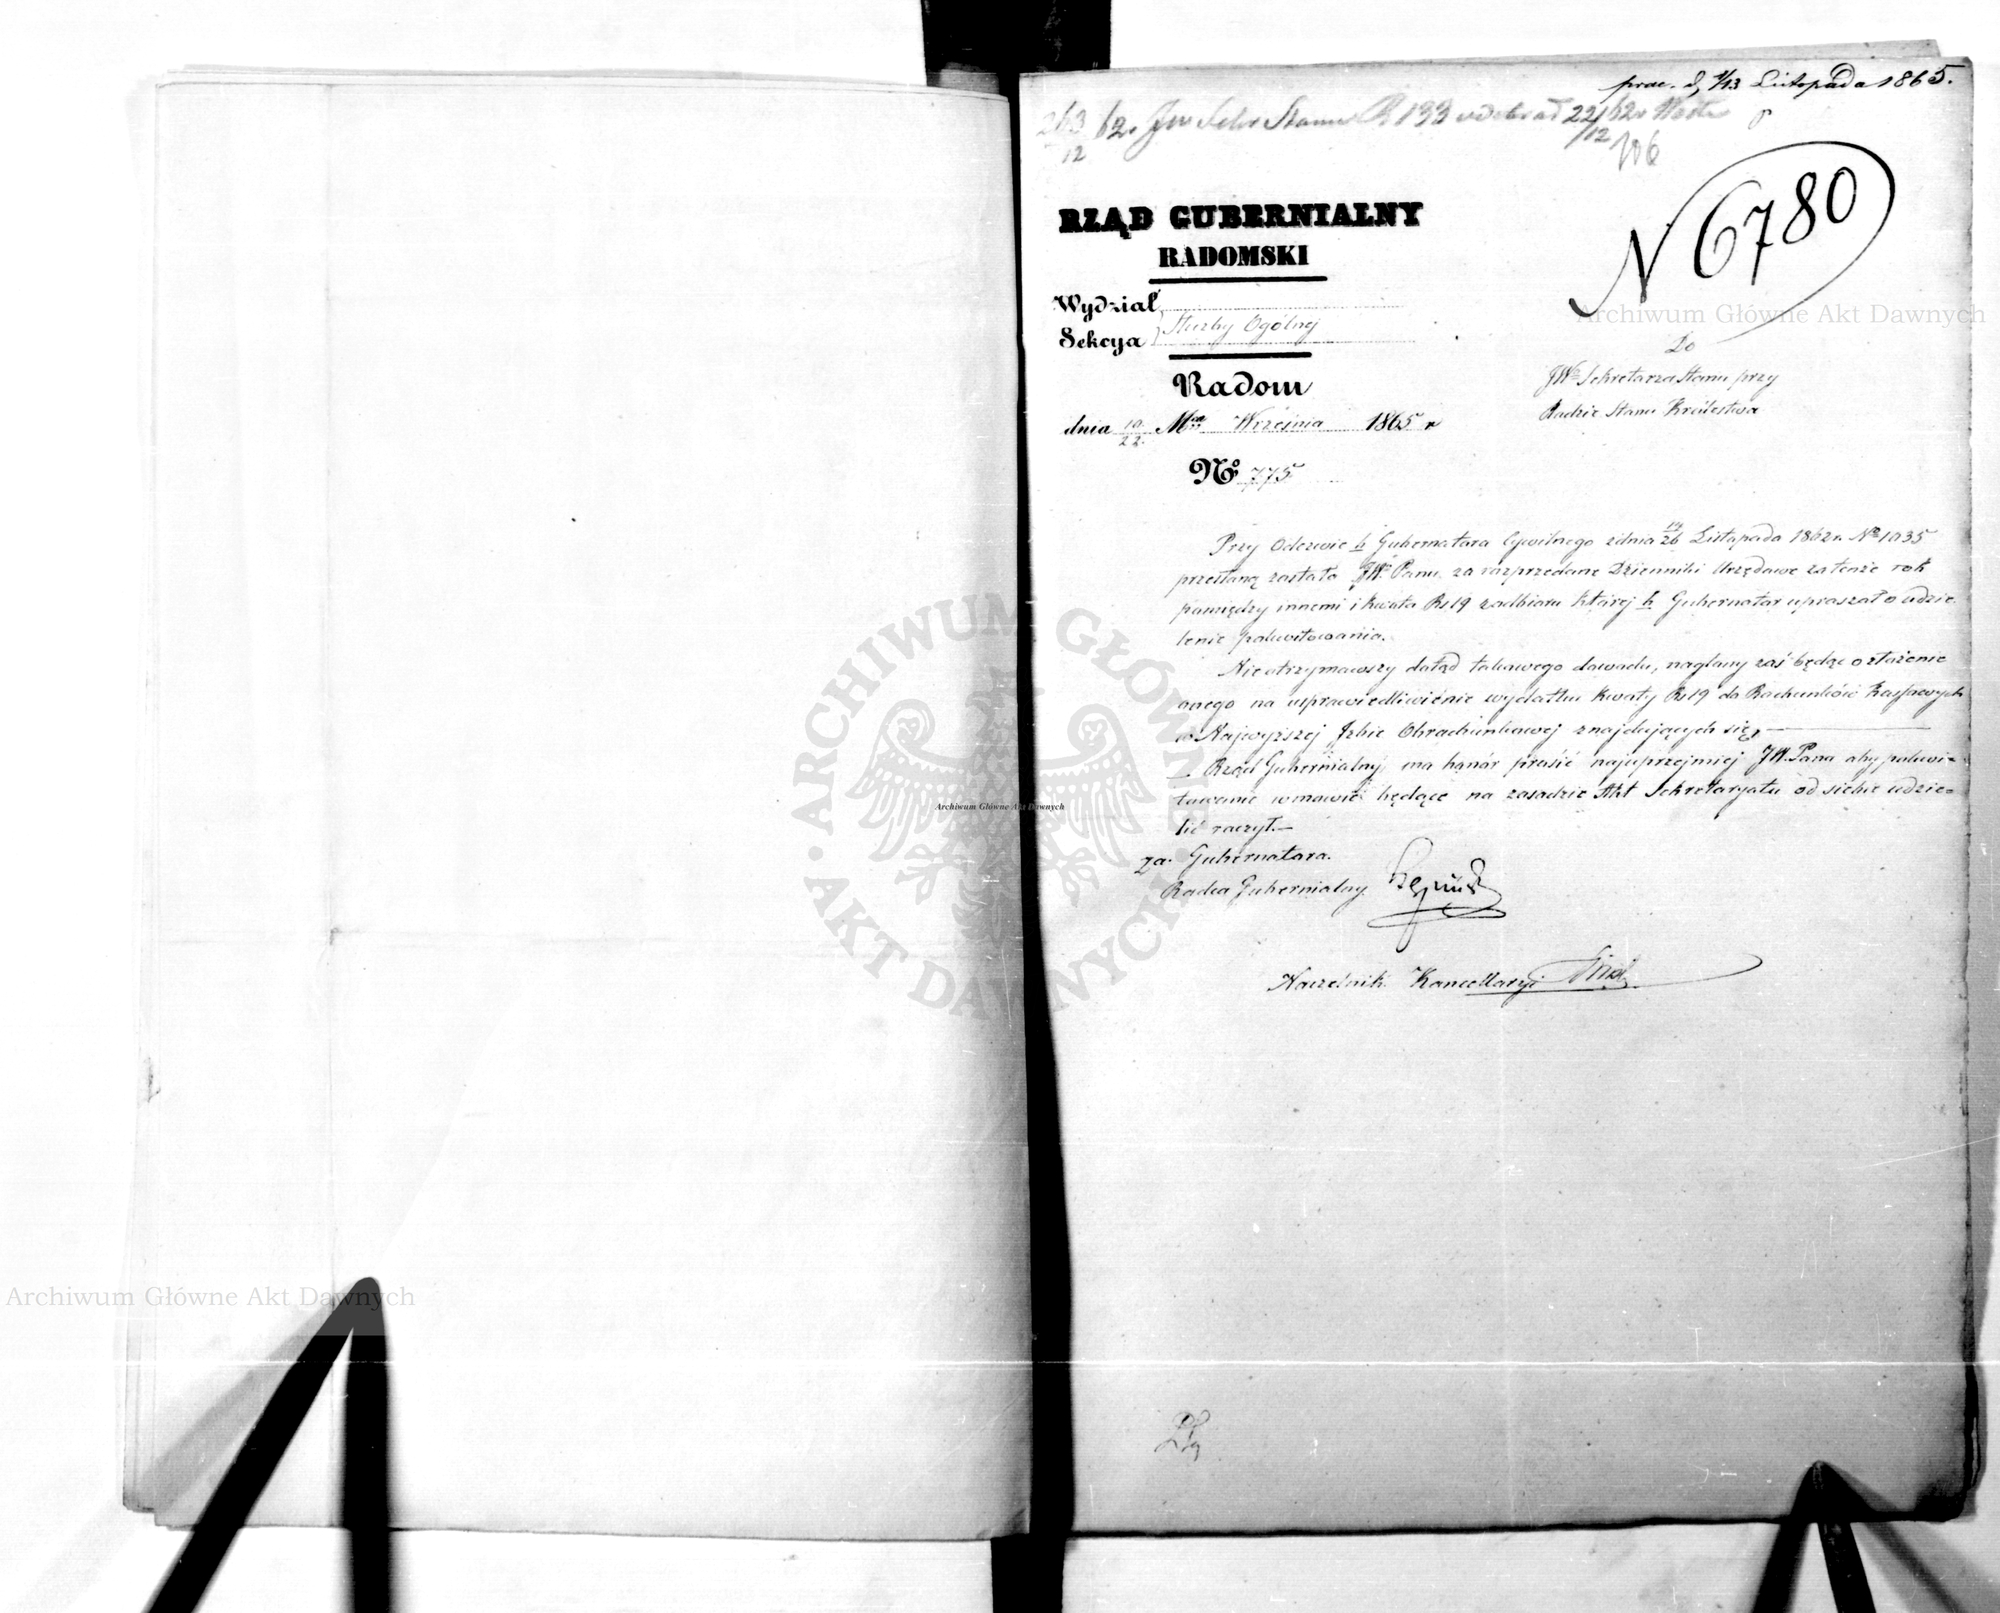 prac. d. 1/13 Listopada 1865.
263/12 62. JW Sekr Stanu R 133 odebrał 22/12 62r
106
N 6780
RZĄD GUBERNIALNY
RADOMSKI
Wydział
Sekcya Służby Ogólnej
Radom
dnia 10/22 Mca Września 1865 r
No 775
Do
JWo Sekretarza Stanu przy
Radzie Stanu Królestwa
Przy Odezwie b Gubernatora Cywilnego z dnia 14/26 Listopada 1862 r. No 1035
przesłaną została JWo Panu za rozprzedane Dzienniki Urzędowe za tenże rok
pomiędzy innemi i kwota Rs 19 z odbioru której b Gubernator upraszał o udzie-
lenie pokwitowania.
Nieotrzymawszy dotąd takowego dowodu, naglony zaś będąc o złożenie
onego na usprawiedliwienie wydatku kwoty Rs 19 do Rachunków Kassowych
w Najwyższej Izbie Obrachunkowej znajdujących się,
Rząd Gubernialny, ma honor prosić najuprzejmiej JW. Pana aby pokwi-
towanie w mowie będące na zasadzie Akt Sekretaryatu od siebie udzie-
lić raczył.
za. Gubernatora.
Radca Gubernialny
Naczelnik Kancellaryi
Archiwum Główne Akt Dawnych
ARCHIWUM GŁÓWNE · AKT DAWNYCH ·
Archiwum Główne Akt Dawnych
Archiwum Główne Akt Dawnych